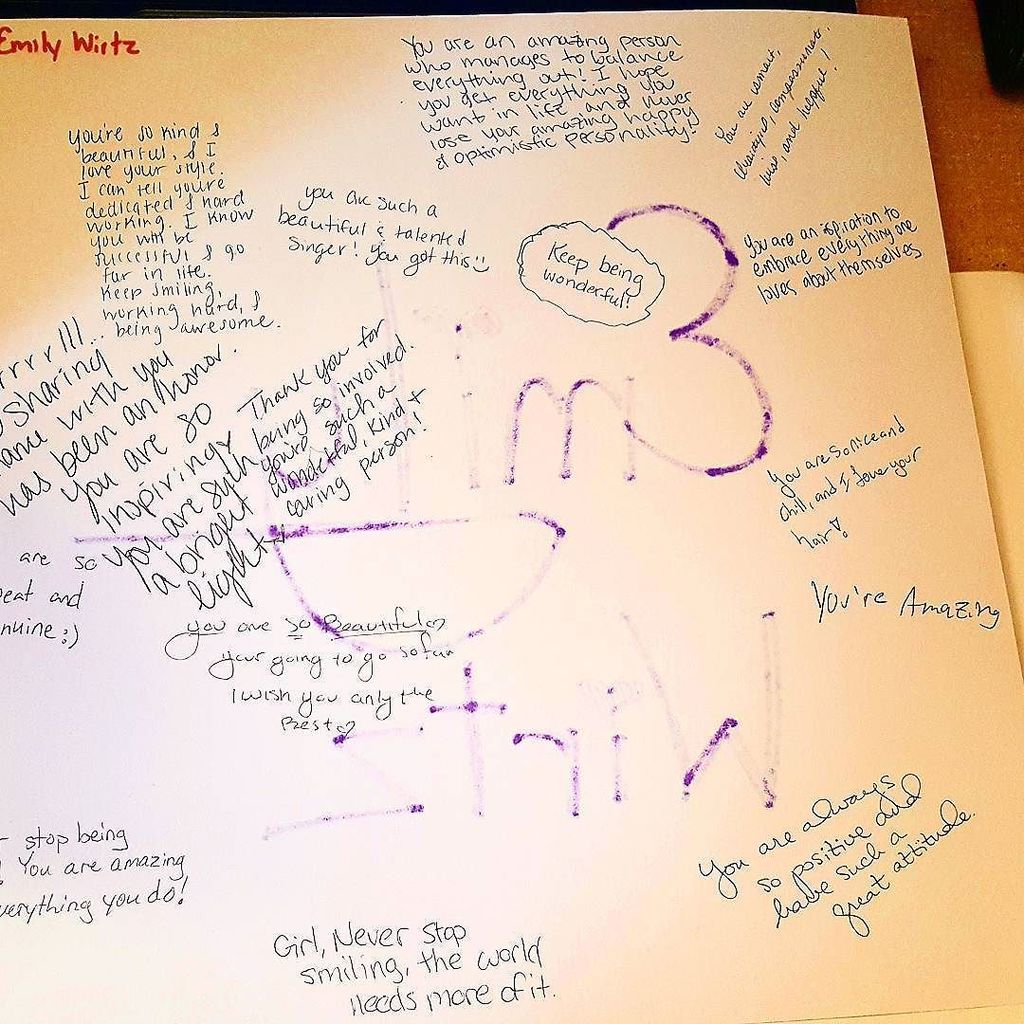 Emily Wirtz
You are an amazing person
who manages to balance
everything out! I hope
you get everything you
want in life and never
lose your amazing happy
& optimistic personality!
You are smart,
and helpful!
you're so kind &
beautiful, & I
love your style.
I can tell you're
dedicated & hard
working. I know
you will be
successful & go
far in life.
Keep smiling,
working hard, &
being awesome.
you are such a
beautiful & talented
singer! You got this
Keep being
wonderful!
You are an ispiration to
embrace everything one
loves about themselves
sharing
with you
has been an honor.
You are so
inspiring
You are such
a bright
light
Thank you for
being so involved.
you're such a
wonderful, kind +
caring person!
You are so nice and
chill, and I love your
hair
are so
and
:)
You're Amazing
you are so Beautiful
your going to go so far
I wish you only the
Best
Emily
D
Wirtz
stop being
You are amazing
you do!
You are always
so positive and
have such a
great attitude.
Girl, Never stop
smiling, the world
needs more of it.